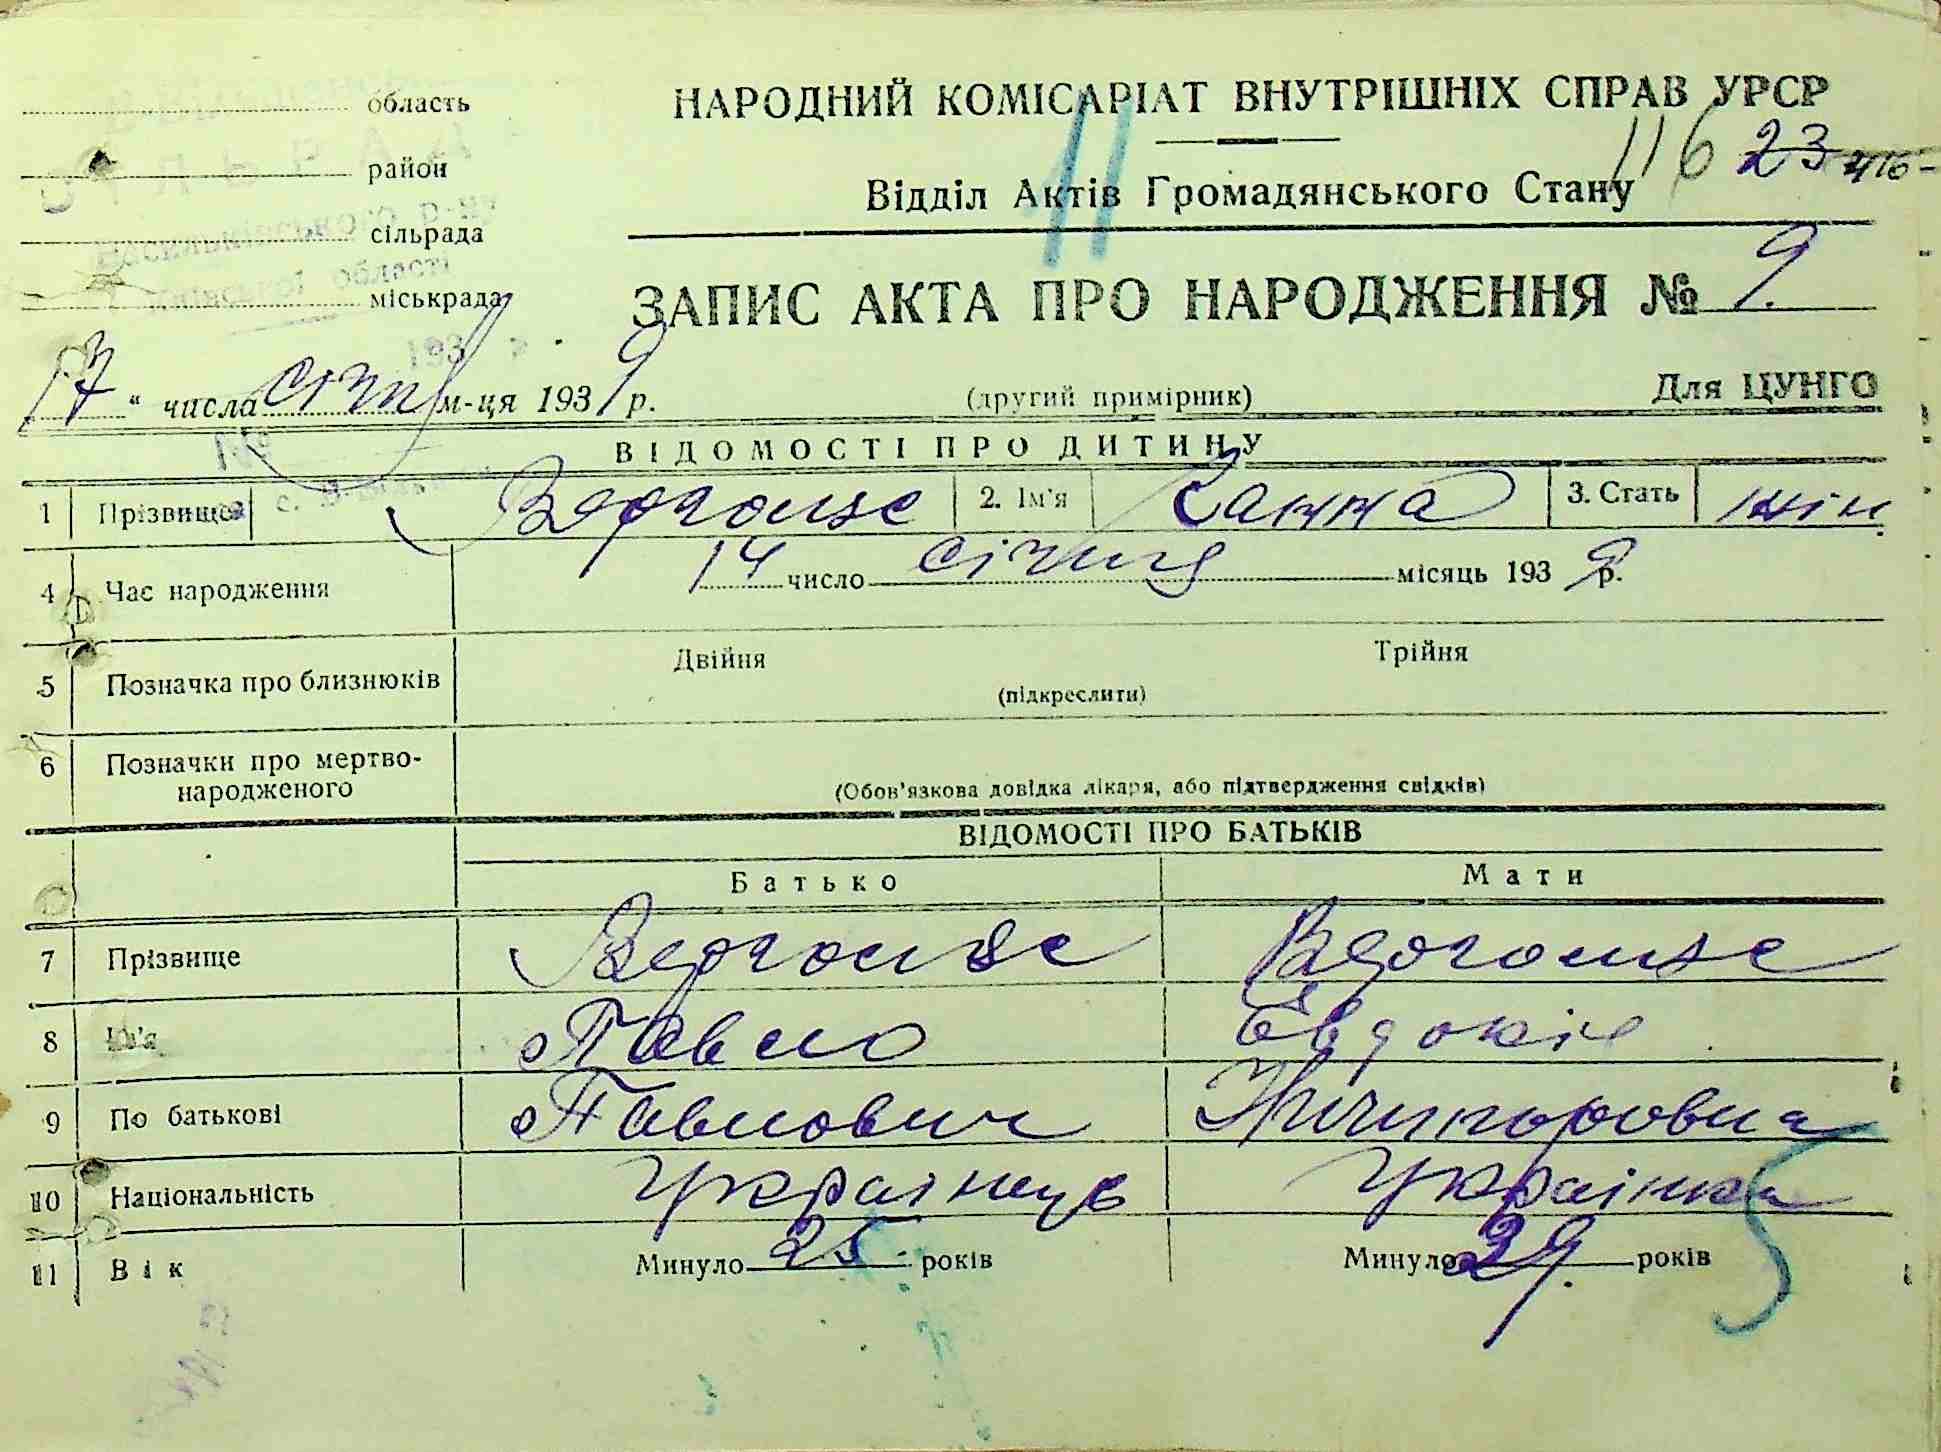 область
НАРОДНИЙ КОМІСАРІАТ ВНУТРІШНІХ СПРАВ УРСР
район
116 23
Відділ Актів Громадянського Стану
11
Васильківського р-ну
сільрада
Київської області
міськрада
ЗАПИС АКТА ПРО НАРОДЖЕННЯ № 9
193
17 " числа січня м-ця 1939 р.
(другий примірник)
Для ЦУНГО
ВІДОМОСТІ ПРО ДИТИНУ
1 Прізвище 2. Ім'я Ганна 3. Стать жін.
4 Час народження 14 число січня місяць 1939 р.
5 Позначка про близнюків Двійня Трійня
(підкреслити)
6 Позначки про мертво-
народженого
(Обов'язкова довідка лікаря, або підтвердження свідків)
ВІДОМОСТІ ПРО БАТЬКІВ
Батько Мати
7 Прізвище
8 Ім'я Павло Євдокія
9 По батькові Павлович Ничипоровна
10 Національність Українець Українка
11 Вік Минуло 25 років Минуло 29 років
5